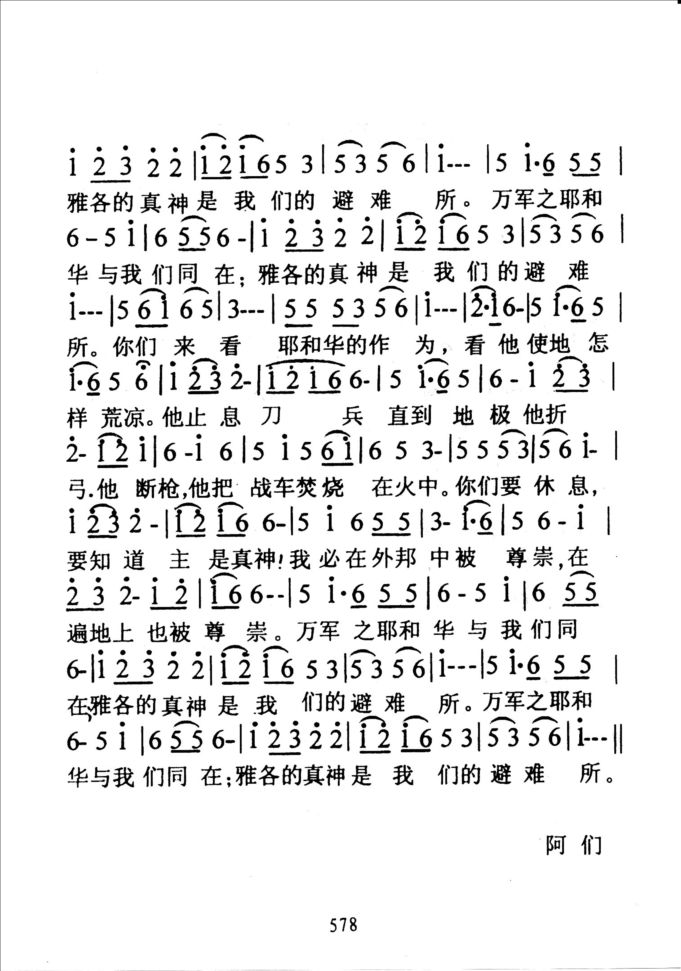 i 2 3 2 2 | i 2 i 6 5 3 | 5 3 5 6 | i--- | 5 i·6 5 5 |
雅各的真神是我们的避难 所。万军之耶和
6 - 5 i | 6 5 5 6 - | i 2 3 2 2 | i 2 i 6 5 3 | 5 3 5 6 |
华与我们同在;雅各的真神是 我们的避难
i--- | 5 6 i 6 5 | 3--- | 5 5 5 3 5 6 | i--- | 2·i 6- | 5 i·6 5 |
所。你们 来 看 耶和华的作 为,看他使地怎
i·6 5 6 | i 2 3 2- | i 2 i 6 6- | 5 i·6 5 | 6 - i 2 3 |
样荒凉。他止息刀 兵直到地极他折
2- i 2 i | 6 - i 6 | 5 i 5 6 i | 6 5 3- | 5 5 5 3 | 5 6 i- |
弓.他断枪,他把 战车焚烧 在火中。你们要休息,
i 2 3 2 - | i 2 i 6 6 - | 5 i 6 5 5 | 3- i·6 | 5 6 - i |
要知道主 是真神!我必在外邦中被 尊崇,在
2 3 2- i 2 | i 6 6-- | 5 i·6 5 5 | 6 - 5 i | 6 5 5
遍地上也被尊崇。万军 之耶和华与我们同
6- | i 2 3 2 2 | i 2 i 6 5 3 | 5 3 5 6 | i--- | 5 i·6 5 5 |
在,雅各的真神是我 们的避难 所。万军之耶和
6- 5 i | 6 5 5 6- | i 2 3 2 2 | i 2 i 6 5 3 | 5 3 5 6 | i--- ||
华与我们同在;雅各的真神是 我 们的避难 所。
阿们
578